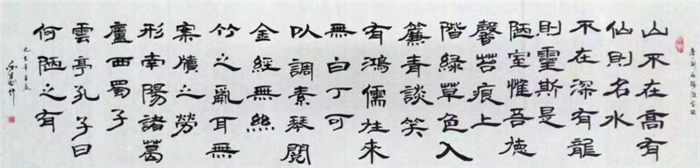 山不在高有
仙則名水
不在深有龍
則靈斯是
陋室惟吾德
馨苔痕上
階綠草色入
簾青談笑
有鴻儒往來
無白丁可
以調素琴閱
金經無絲
竹之亂耳無
案牘之勞
形南陽諸葛
廬西蜀子
雲亭孔子曰
何陋之有